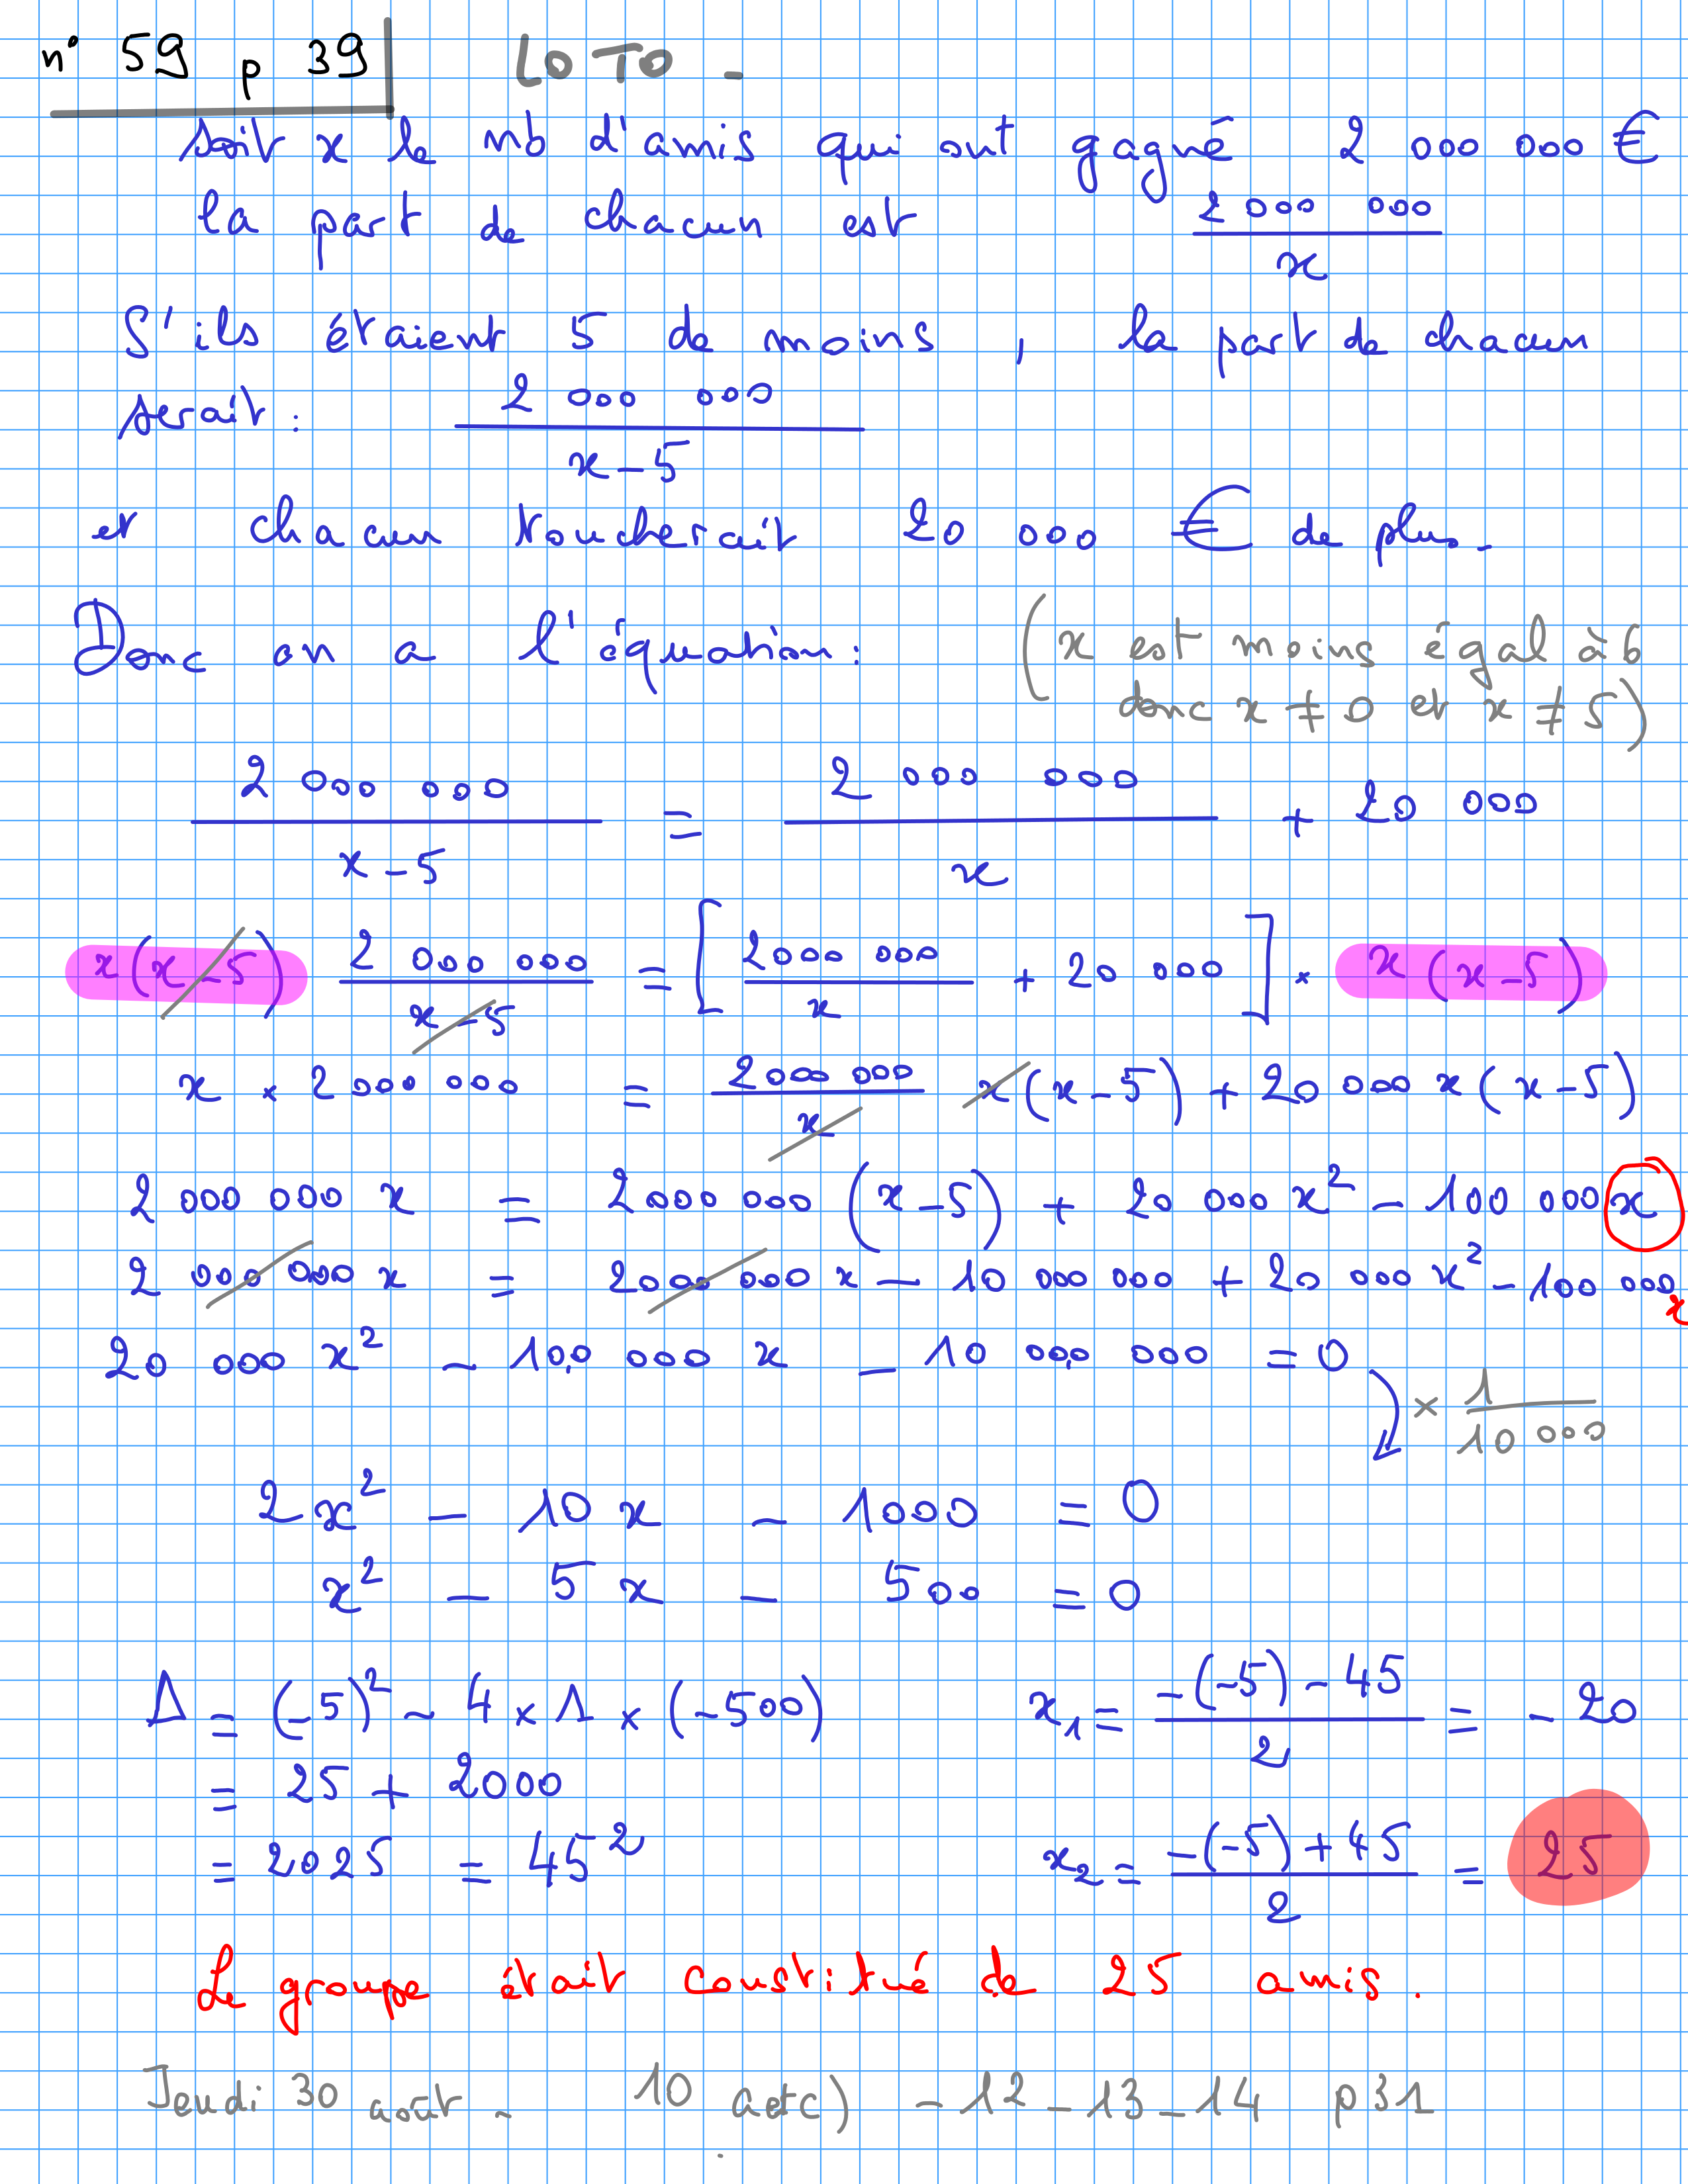 n° 59 p 39 LOTO -
Soit x le nb d'amis qui ont gagné 2 000 000 €
la part de chacun est 2 000 000 / x
S'ils étaient 5 de moins, la part de chacun
serait : 2 000 000 / x - 5
et chacun toucherait 20 000 € de plus.
Donc on a l'équation : (x est moins égal à 6
donc x ≠ 0 et x ≠ 5)
2 000 000 / x - 5 = 2 000 000 / x + 20 000
x(x - 5) 2 000 000 / x - 5 = [2 000 000 / x + 20 000] × x(x - 5)
x × 2 000 000 = 2 000 000 / x x(x - 5) + 20 000 x(x - 5)
2 000 000 x = 2 000 000 (x - 5) + 20 000 x² - 100 000 x
2 000 000 x = 2 000 000 x - 10 000 000 + 20 000 x² - 100 000 x
20 000 x² - 100 000 x - 10 000 000 = 0
× 1 / 10 000
2x² - 10x - 1000 = 0
x² - 5x - 500 = 0
Δ = (-5)² - 4 × 1 × (-500) x₁ = -(-5) - 45 / 2 = - 20
= 25 + 2000
= 2025 = 45² x₂ = -(-5) + 45 / 2 = 25
Le groupe était constitué de 25 amis.
Jeudi 30 août - 10 aetc) - 12 - 13 - 14 p 31